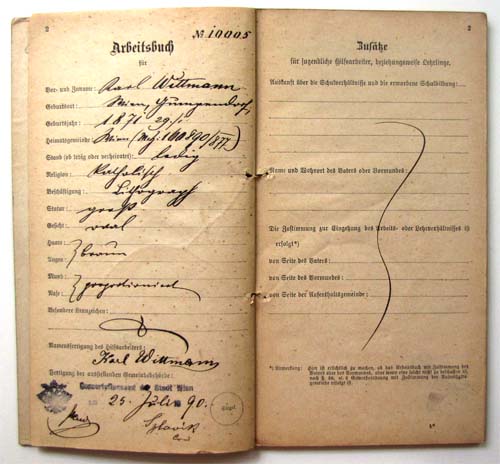 2
№ 10005
Arbeitsbuch
für
Vor- und Zuname: Karl Wittmann
Geburtsort: Wien, Gumpendorf
Geburtsjahr: 1871 29./
Heimatsgemeinde: Wien
Stand (ob ledig oder verheiratet): ledig
Religion: Katholisch
Beschäftigung: Lithograph
Statur: groß
Gesicht: oval
Haare:
Augen: } braun
Mund:
Nase: } proportionirt
Besondere Kennzeichen:
Namensfertigung des Hilfsarbeiters:
Karl Wittmann
Fertigung der ausstellenden Gemeindebehörde:
der Stadt Wien
25. Juli 90.
Siegel
2
Zusätze
für jugendliche Hilfsarbeiter, beziehungsweise Lehrlinge.
Auskunft über die Schulverhältnisse und die erworbene Schulbildung:
Name und Wohnort des Vaters oder Vormundes:
Die Zustimmung zur Eingehung des Arbeits- oder Lehrverhältnisses ist
erfolgt*)
von Seite des Vaters:
von Seite des Vormundes:
von Seite der Aufenthaltsgemeinde:
*) Anmerkung: Hier ist ersichtlich zu machen, ob das Arbeitsbuch mit Zustimmung des
Vaters oder des Vormundes, oder wenn eine solche nicht zu beschaffen ist,
nach § 80, al. 6 Gewerbeordnung mit Zustimmung der Aufenthaltsgemeinde erfolgt ist.